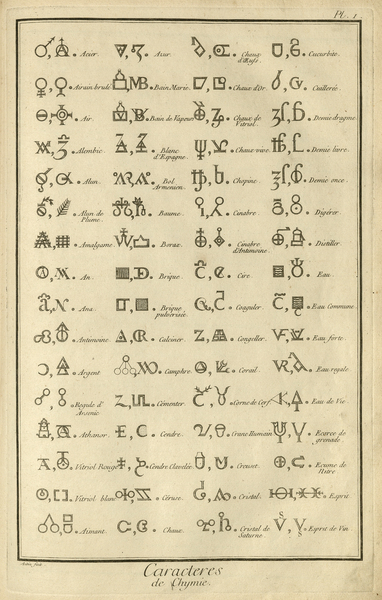 Pl. 1.
Acier. Azur. Chaux d'Œufs. Cucurbite.
Airain brulé. Bain Marie. Chaux d'Or. Cuillerée.
Air. Bain de Vapeurs. Chaux de Vitriol. Demie dragme.
Alembic. Blanc d'Espagne. Chaux vive. Demie livre.
Alun. Bol Armenien. Chopine. Demie once.
Alun de Plume. Baume. Cinabre. Digérer.
Amalgame. Borax. Cinabre d'Antimoine. Distiller.
An. Brique. Cire. Eau.
Ana. Brique pulverisée. Coaguler. Eau Commune.
Antimoine. Calciner. Congeller. Eau forte.
Argent. Camphre. Corail. Eau regale.
Regule d'Arsenic. Cémenter. Corne de Cerf. Eau de Vie.
Athanor. Cendre. Crane Humain. Ecorce de grenade.
Vitriol Rouge. Cendre Clavelée. Creuset. Ecume de Nitre.
Vitriol blanc. Céruse. Cristal. Esprit.
Aimant. Chaux. Cristal de Saturne. Esprit de Vin.
Caracteres
de Chymie.